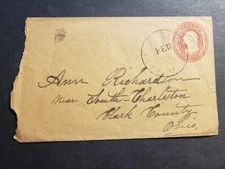 FEB
Ann Richardson
Near South-Charleston
Clark County
Ohio.